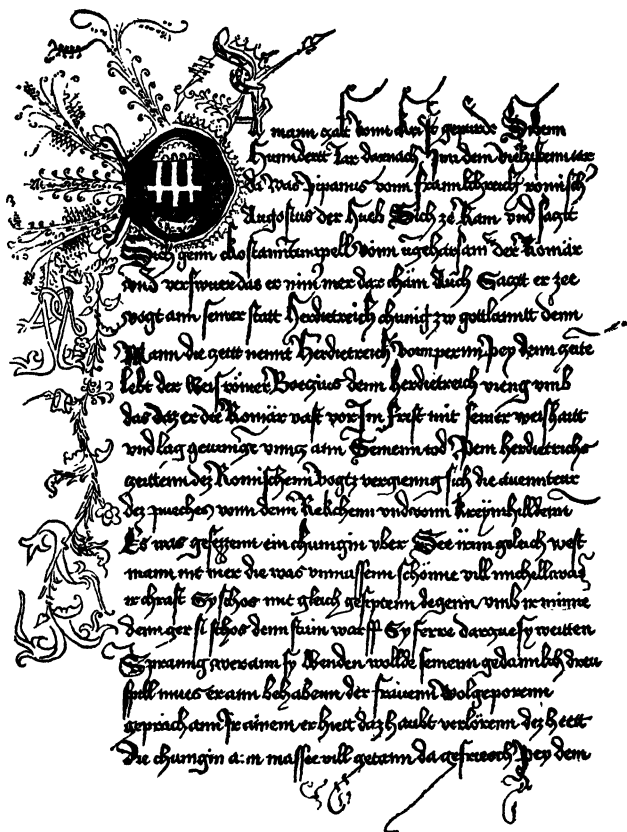 mann zalt vonn gepurde Sibenn
Hunndertt Jar darnach Jnn dem vierzikistem iar
da was pipanus vonn frannkchreich romisch
Augostus der hueb Sich ze Ram vnd saczt
Sich genn Costanntinapell vonn vngeharsam der Romär
vnd verswuer das er nim mer dar chäm Auch Saczt er zee
vogt ann seiner statt Herdietreich chunig zw gottlanntt denn
Mann die zeitt nennt Herdietreich vonn pernn Pey denn zeite
lebt der weis römer Boezius denn Herdietreich vieng vmb
das daz er die Romär vast vor Jm frist mit seiner weishaitt
vnd lag gevannge vnncz ann Seinenn tod Pein herdietrichs
zeittenn dez Romischenn Vogtz vergienng sich die auenntewr
dez pueches vonn denn Rekchenn vnd vonn kreymhilldenn
Es was gesezzenn ein chunigin vber See irrm geleich west
mann nit mer die was vnmassenn schönne vill michell was
ir chrafft Sy schos mit gleich geseptenn degenn vmb ir minne
denn ger si schos denn stain warff Sy ferre dar zue sy weitten
Sprannig wer ann sy wenden wollde seinenn gedannkch dreu
spill mues er ann behabenn der frauenn Wolgeporenn
geprach ann Jr ainem er hiett daz haubt verlorenn dez hett
die chunigin ann massee vill getann da gefriesch Pey dem